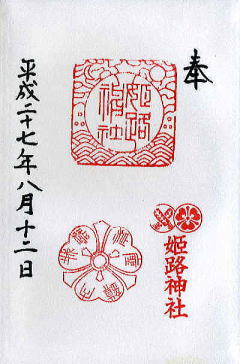 奉
姫路神社
姫路神社
平成二十七年八月十二日